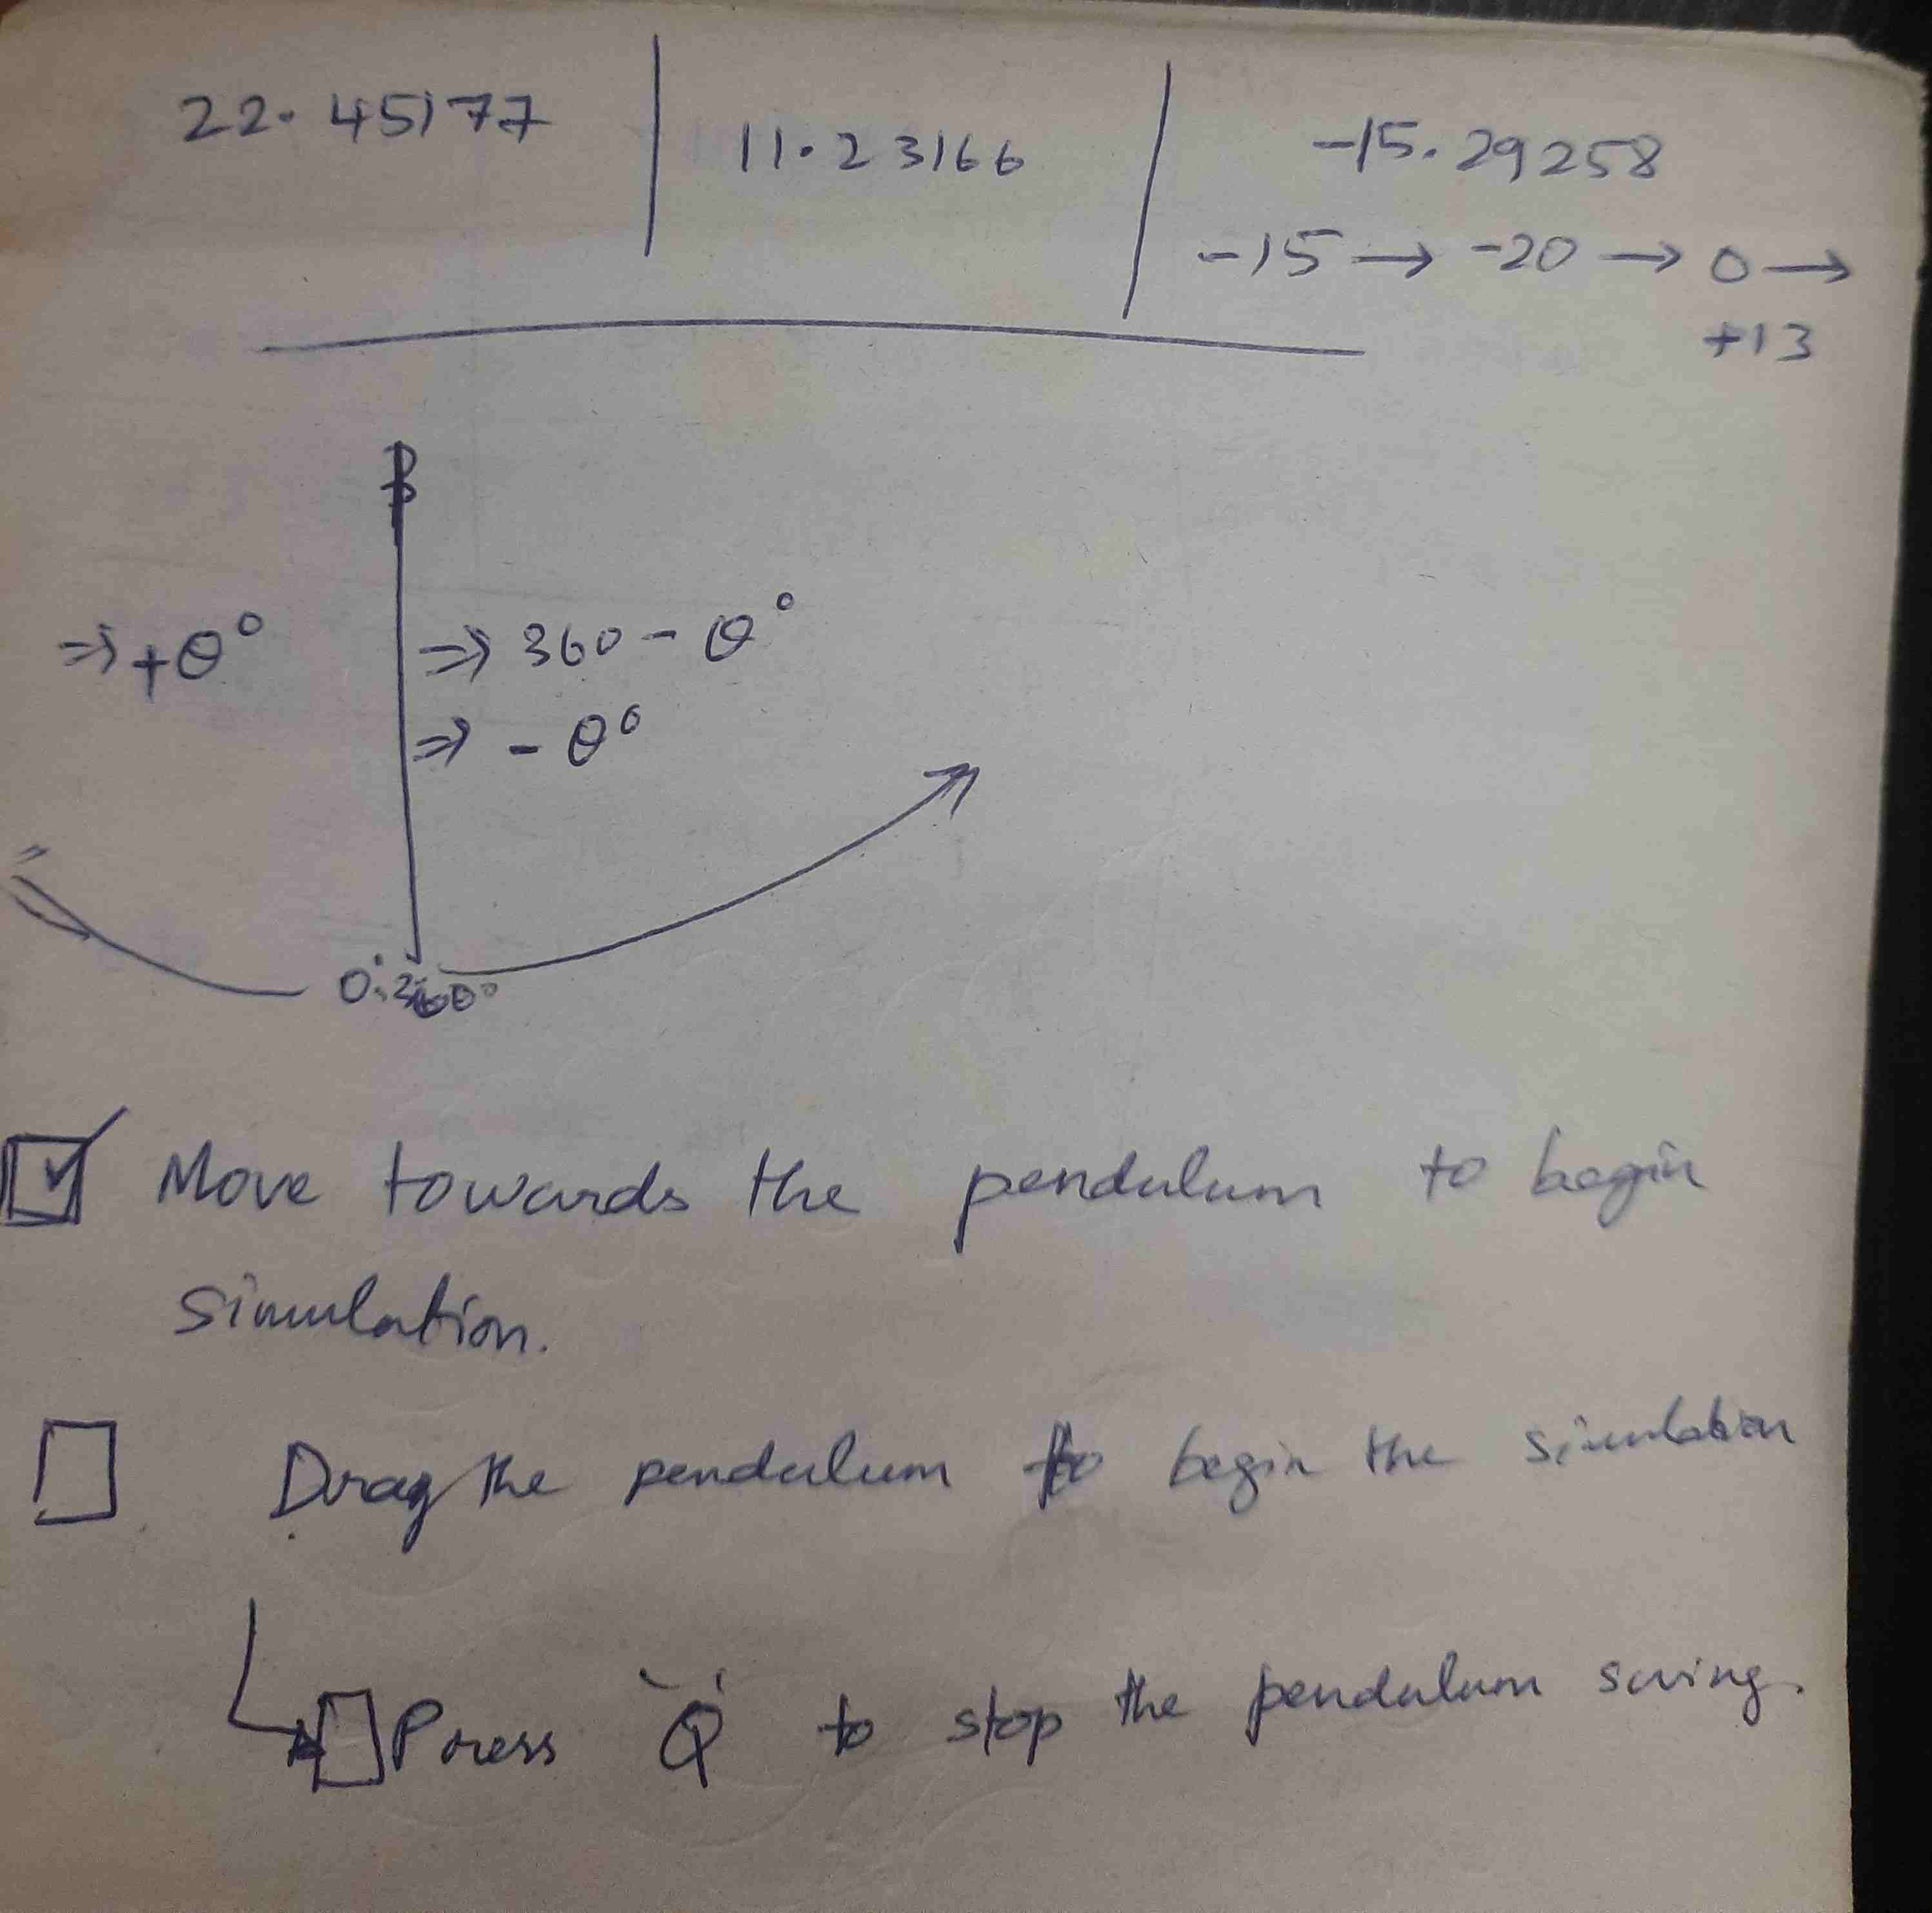 22.45177
11.23166
-15.29258
-15 → -20 → 0 →
+13
⇒ +θ°
⇒ 360 - θ°
⇒ - θ°
0°, 360°
Move towards the pendulum to begin
simulation.
Drag the pendulum to begin the simulation
Press 'Q' to stop the pendulum swing.